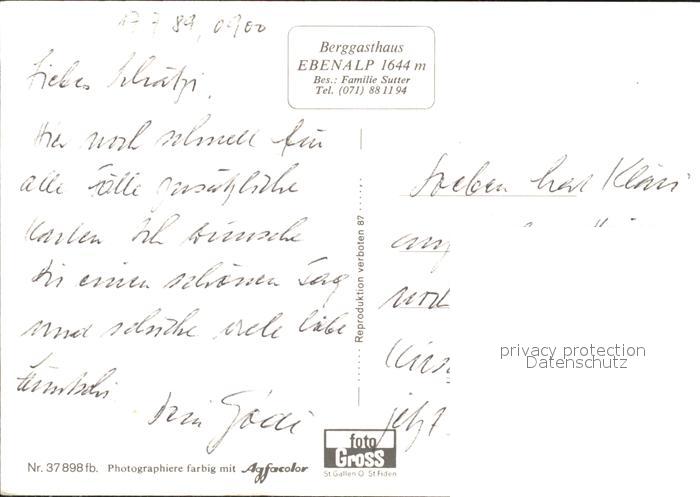 17.7.89, 0900
Berggasthaus
EBENALP 1644 m
Bes.: Familie Sutter
Tel. (071) 88 11 94
Liebes Schätzi,
Hier noch schnell für
alle Fälle zusätzliche
Karten. Ich wünsche
Dir einen schönen Tag
und schicke viele liebe
Dein
Soeben hat Kläri
noch
jetzt
Reproduktion verboten 87
privacy protection
Datenschutz
foto
Gross
St.Gallen O St.Fiden
Nr. 37 898 fb. Photographiere farbig mit Agfacolor